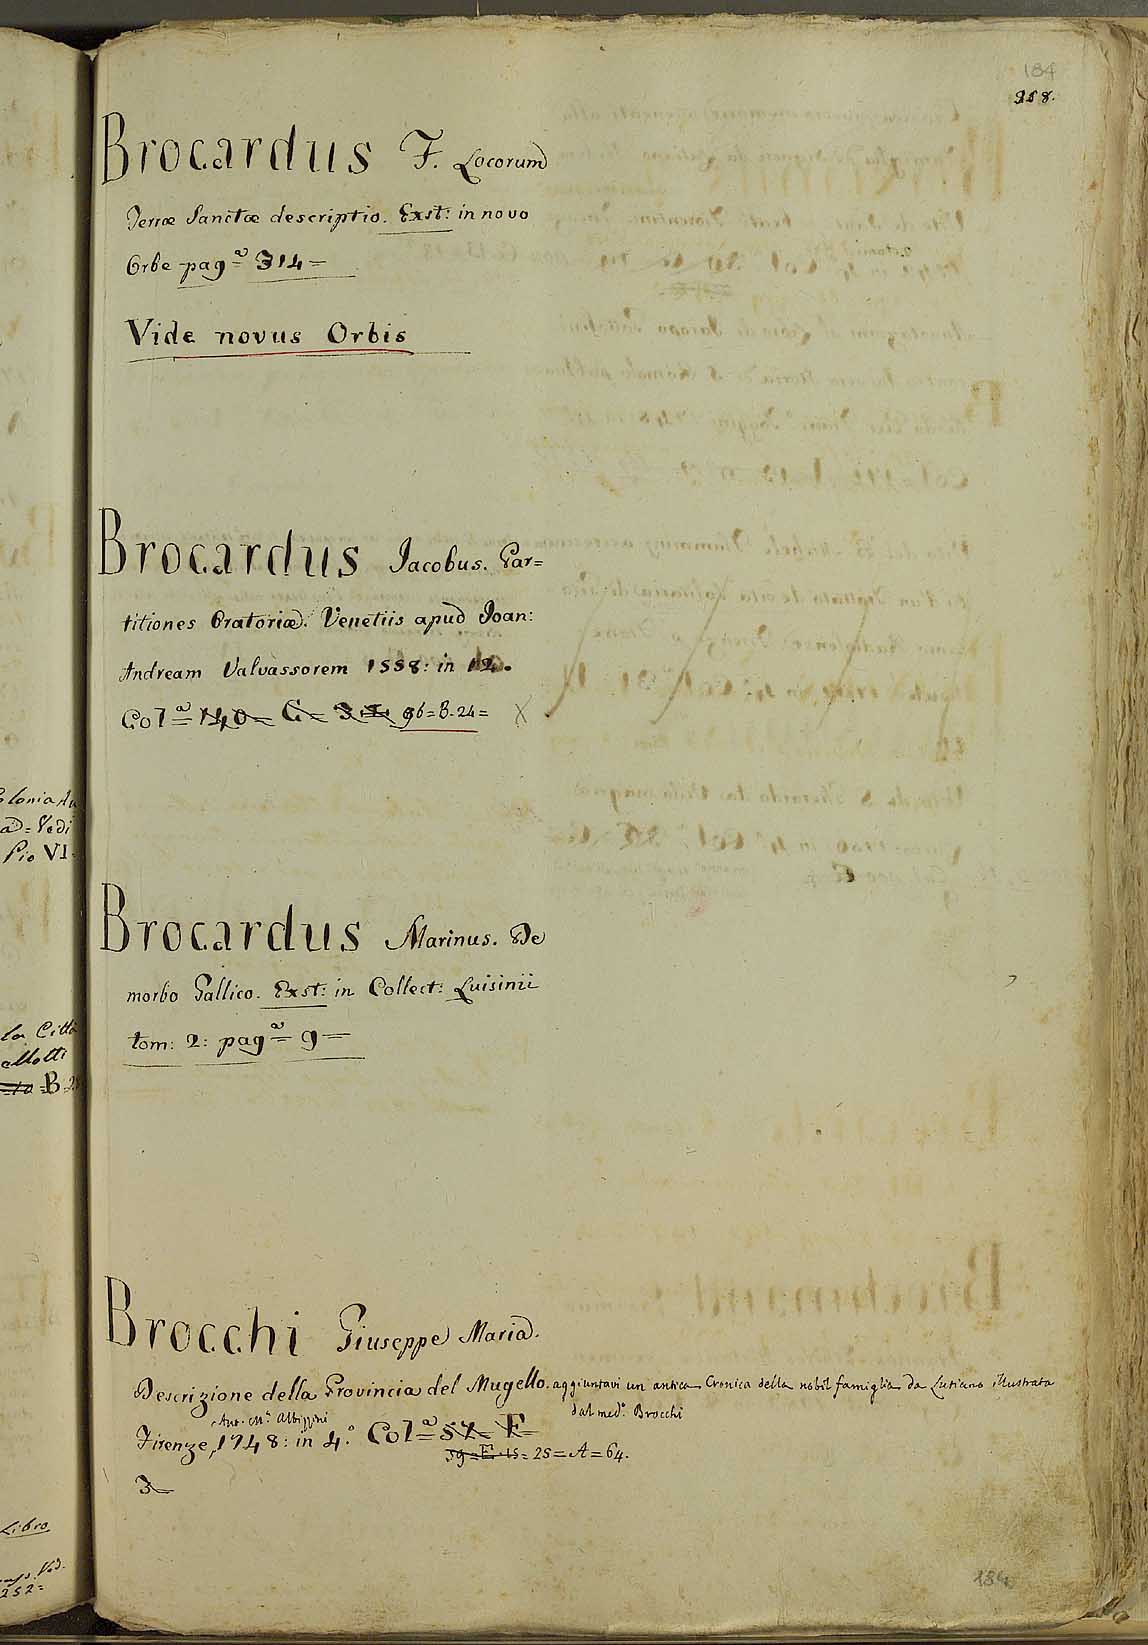 184
218.
Brocardus F. Locorum
Terræ Sanctæ descriptio. Exst: in novo
Orbe pag.ª 314=
Vide novus Orbis
Brocardus Jacobus. Par=
titiones Oratoriæ. Venetiis apud Joan:
Andream Valvassorem 1558: in 12.
Colª= 140= C= 96=B-24= X
Brocardus Marinus. De
morbo Gallico. Exst: in Collect: Luisinii
tom: 2: pagª= 9=
Brocchi Giuseppe Maria.
Descrizione della Provincia del Mugello. aggiuntavi un antica Cronica della nobil famiglia da Lutiano illustrata
dal med.º Brocchi
Ant. M.ª Albizzini
Firenze, 1748: in 4.º Colª= 57= F=
59=E-15=25=A=64.
3=
184
olonia
Vedi
Pio VI
la Città
B
Libro
252=